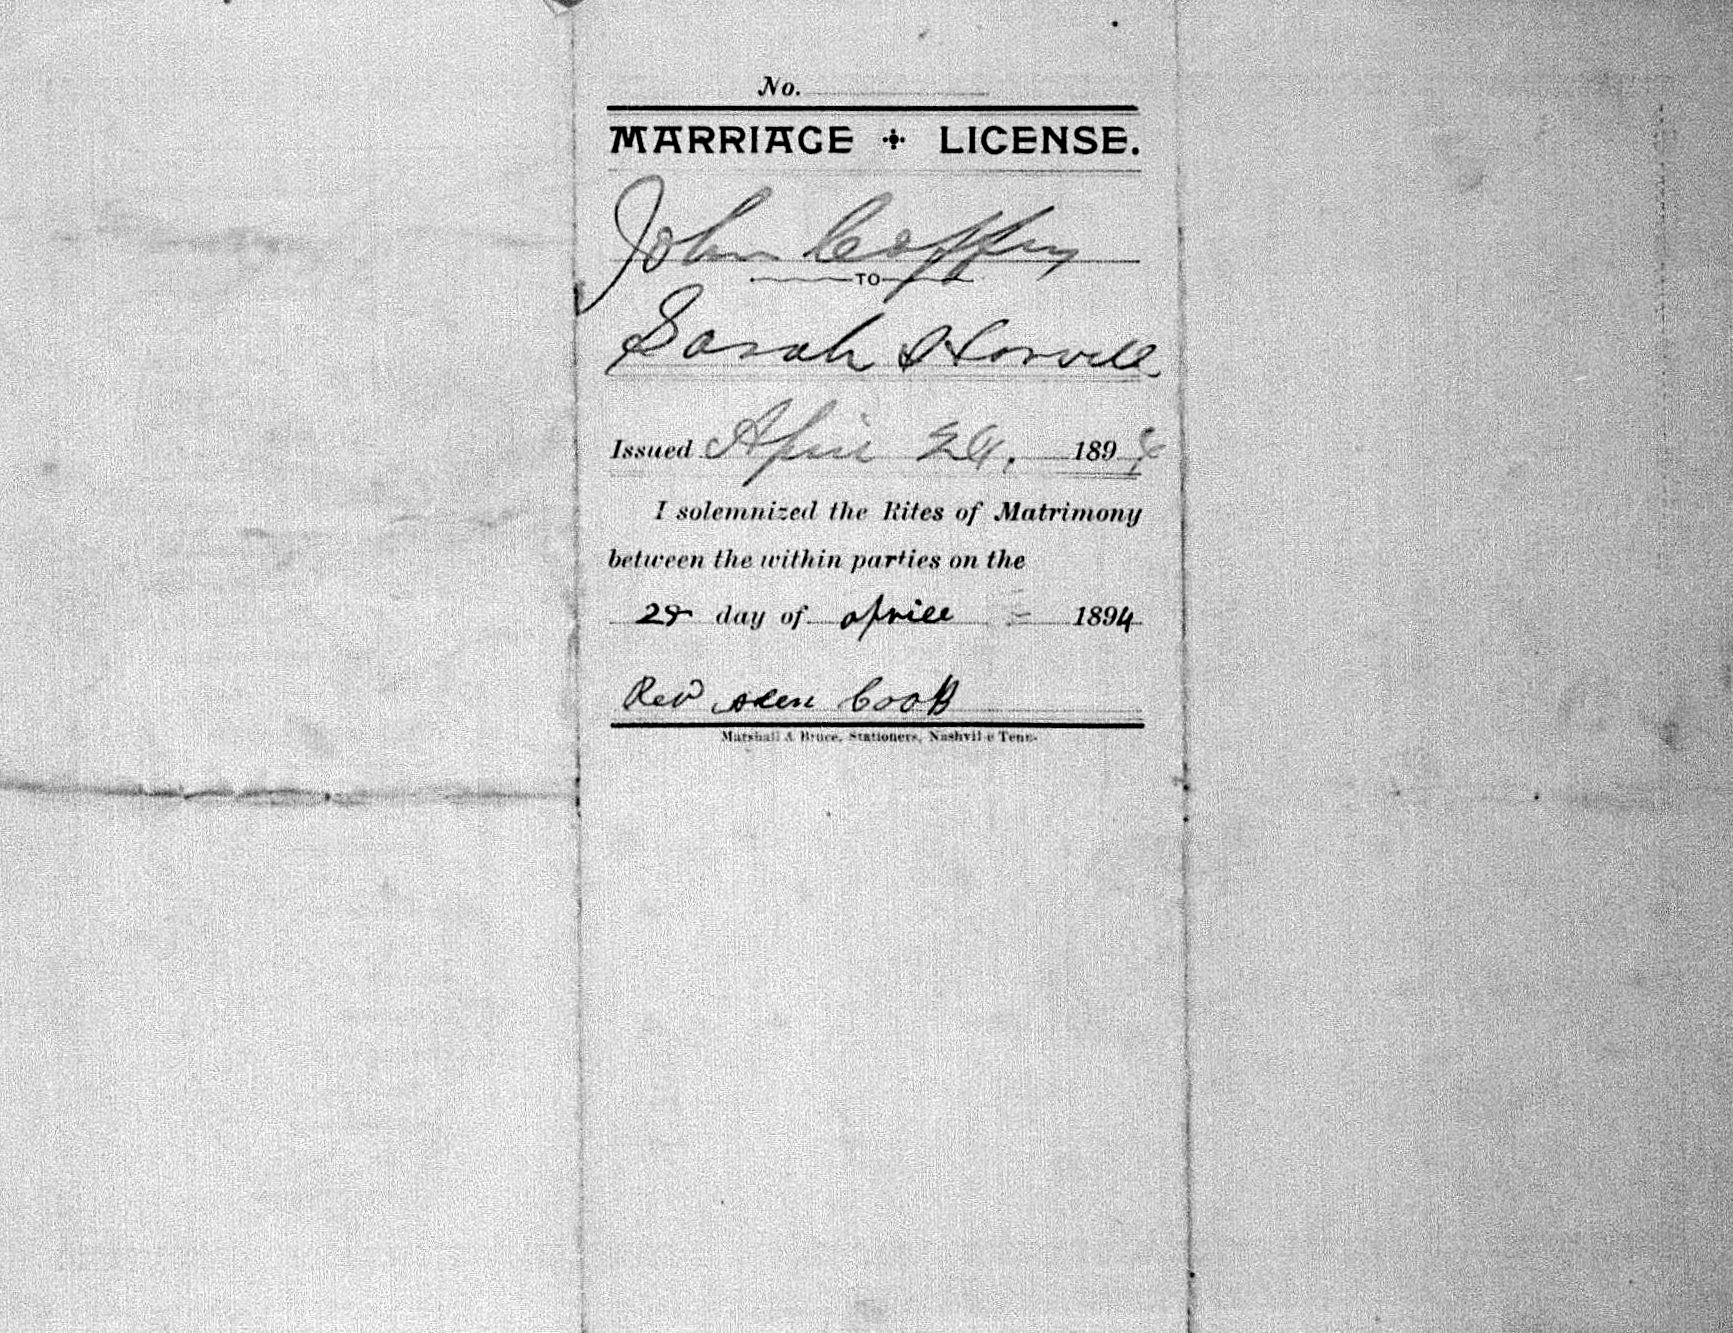 No.
MARRIAGE LICENSE.
John Coffey
TO
Sarah Norvell
Issued April 24, 1894
I solemnized the Rites of Matrimony
between the within parties on the
28 day of aprill 1894
Rev Cook
Marshall & Bruce, Stationers, Nashville Tenn.